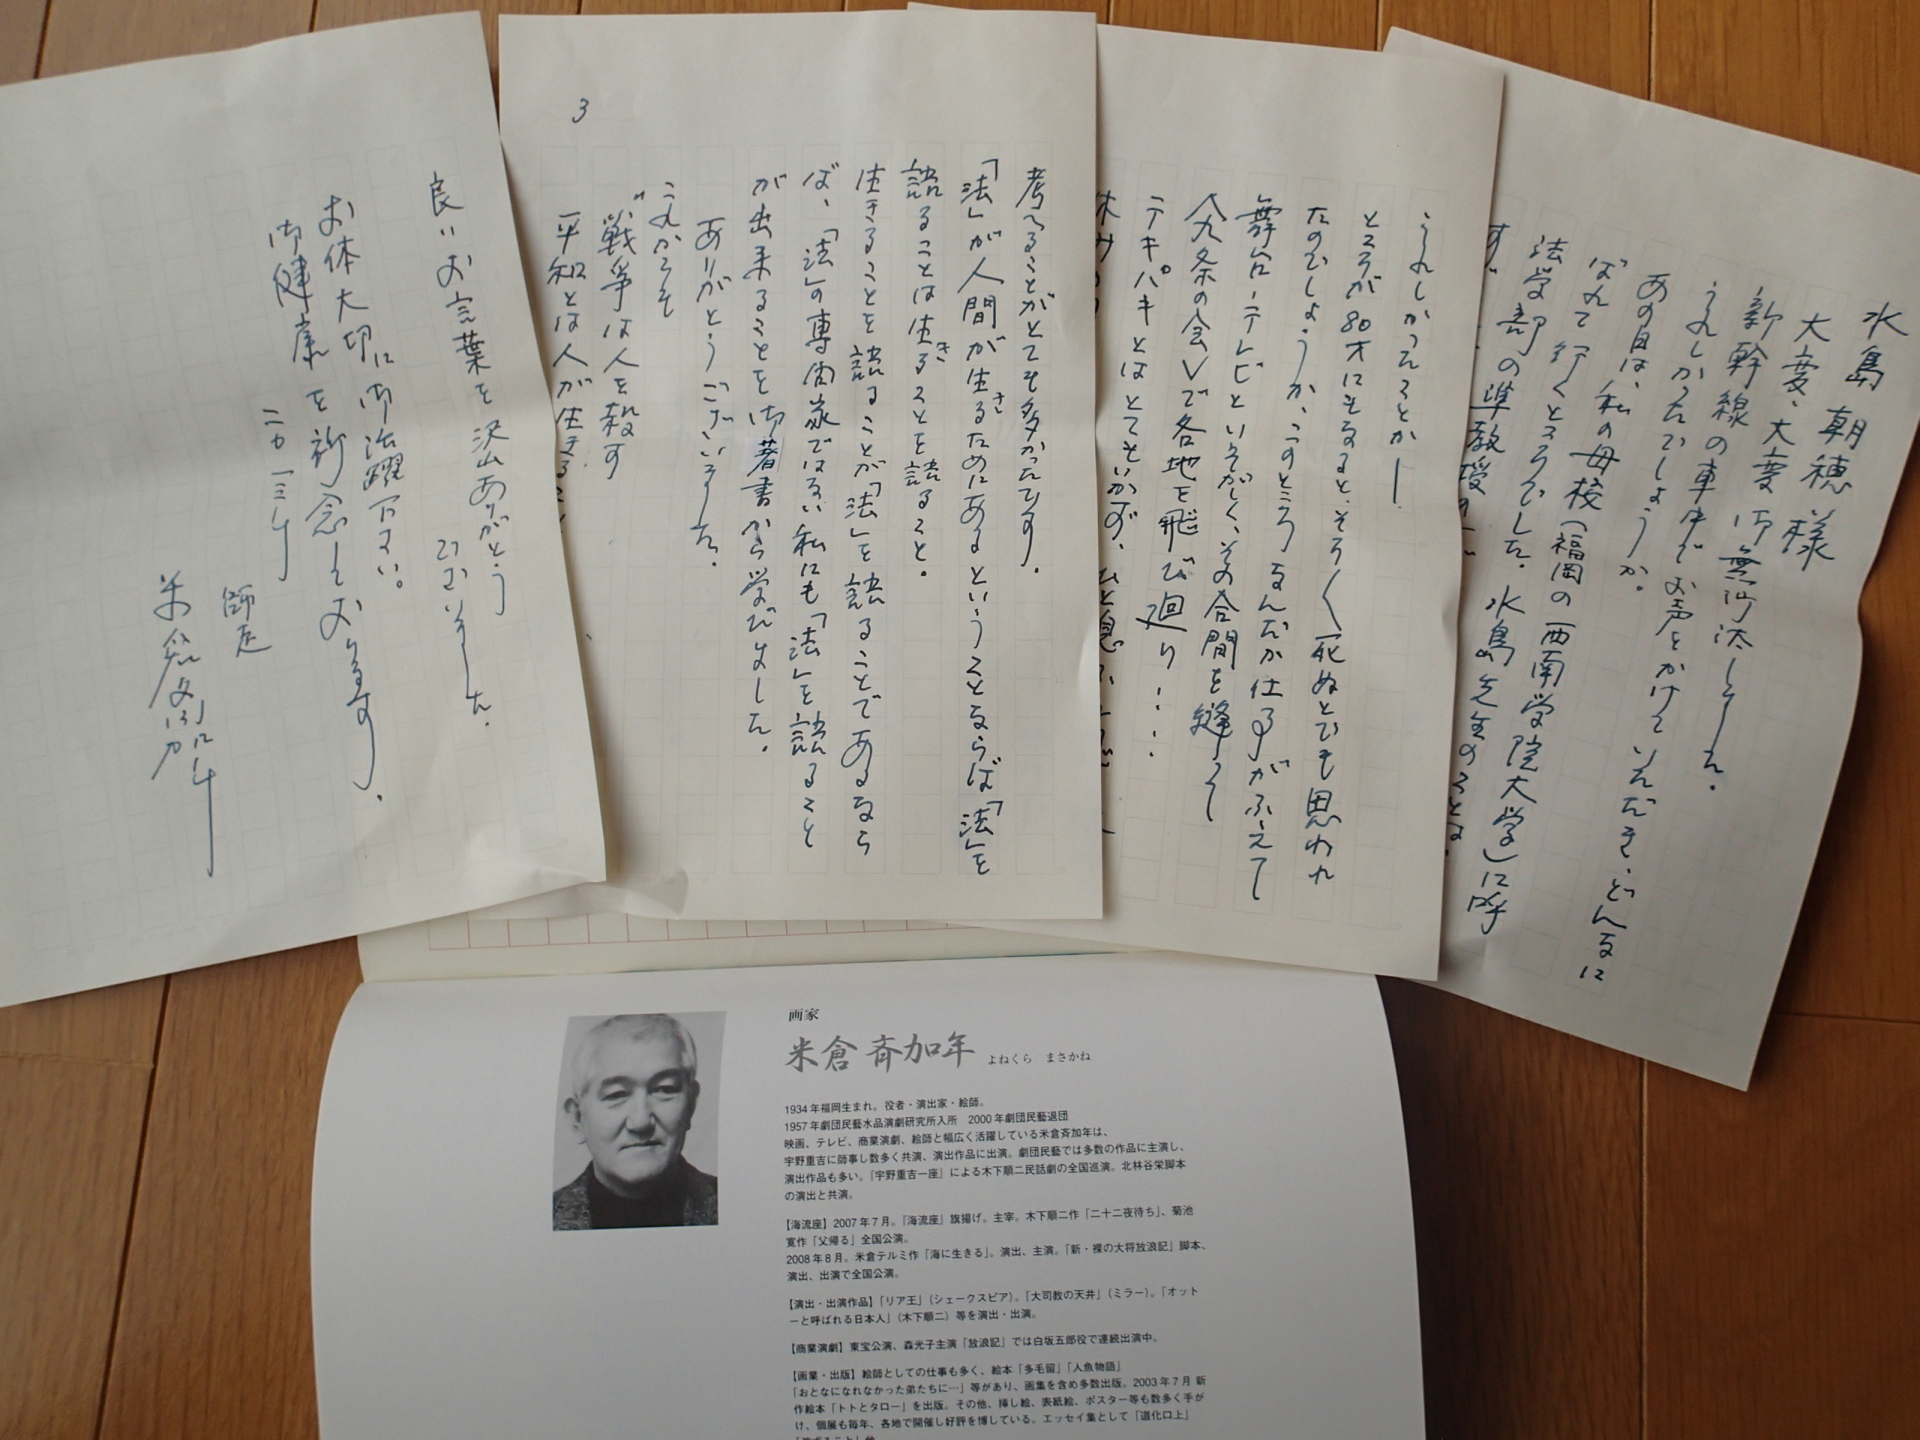 水島朝穂様
大変、大変御無沙汰しました。
新幹線の車中でお声をかけていただき、どんなに
うれしかったでしょうか。
あの日は、私の母校(福岡の西南学院大学)に呼
ばれて行くところでした。水島先生のことは、
法学部の準教授の
す。
うれしかったことか―
ところが80才にもなると、そろ〱死ぬとでも思われ
たのでしょうか、このところなんだか仕事がふえて
舞台―テレビといそがしく、その合間を縫って
九条の会Vで各地を飛び廻り・・・・
テキパキとはとてもいかず、ひと息
休みの
3
考へることがとても多かったです。
「法」が人間が生きるためにあるということならば「法」を
語ることは生きることを語ること。
生きることを語ることが「法」を語ることであるなら
ば、「法」の専門家ではない私にも「法」を語ること
が出来ることを御著書から学びました。
ありがとうございました。
これからも
"戦争は人を殺す
平和とは人が生きること
良いお言葉を沢山ありがとう
ございました。
お体大切に御活躍下さい。
御健康を祈念しております。
二〇一三年
師走
米倉斉加年
画家
米倉 斉加年 よねくら まさかね
1934年福岡生まれ。役者・演出家・絵師。
1957年劇団民藝水品演劇研究所入所 2000年劇団民藝退団
映画、テレビ、商業演劇、絵師と幅広く活躍している米倉斉加年は、
宇野重吉に師事し数多く共演、演出作品に出演。劇団民藝では多数の作品に主演し、
演出作品も多い。「宇野重吉一座」による木下順二民話劇の全国巡演。北林谷栄脚本
の演出と共演。
【海流座】2007年7月。「海流座」旗揚げ。主宰。木下順二作「二十二夜待ち」、菊池
寛作「父帰る」全国公演。
2008年8月。米倉テルミ作「海に生きる」。演出、主演。「新・裸の大将放浪記」脚本、
演出、出演で全国公演。
【演出・出演作品】「リア王」(シェークスピア)。「大司教の天井」(ミラー)。「オット
ーと呼ばれる日本人」(木下順二)等を演出・出演。
【商業演劇】東宝公演、森光子主演「放浪記」では白坂五郎役で連続出演中。
【画業・出版】絵師としての仕事も多く、絵本「多毛留」「人魚物語」
「おとなになれなかった弟たちに…」等があり、画集を含め多数出版。2003年7月 新
作絵本「トトとタロー」を出版。その他、挿し絵、表紙絵、ポスター等も数多く手が
け、個展も毎年、各地で開催し好評を博している。エッセイ集として「道化口上」